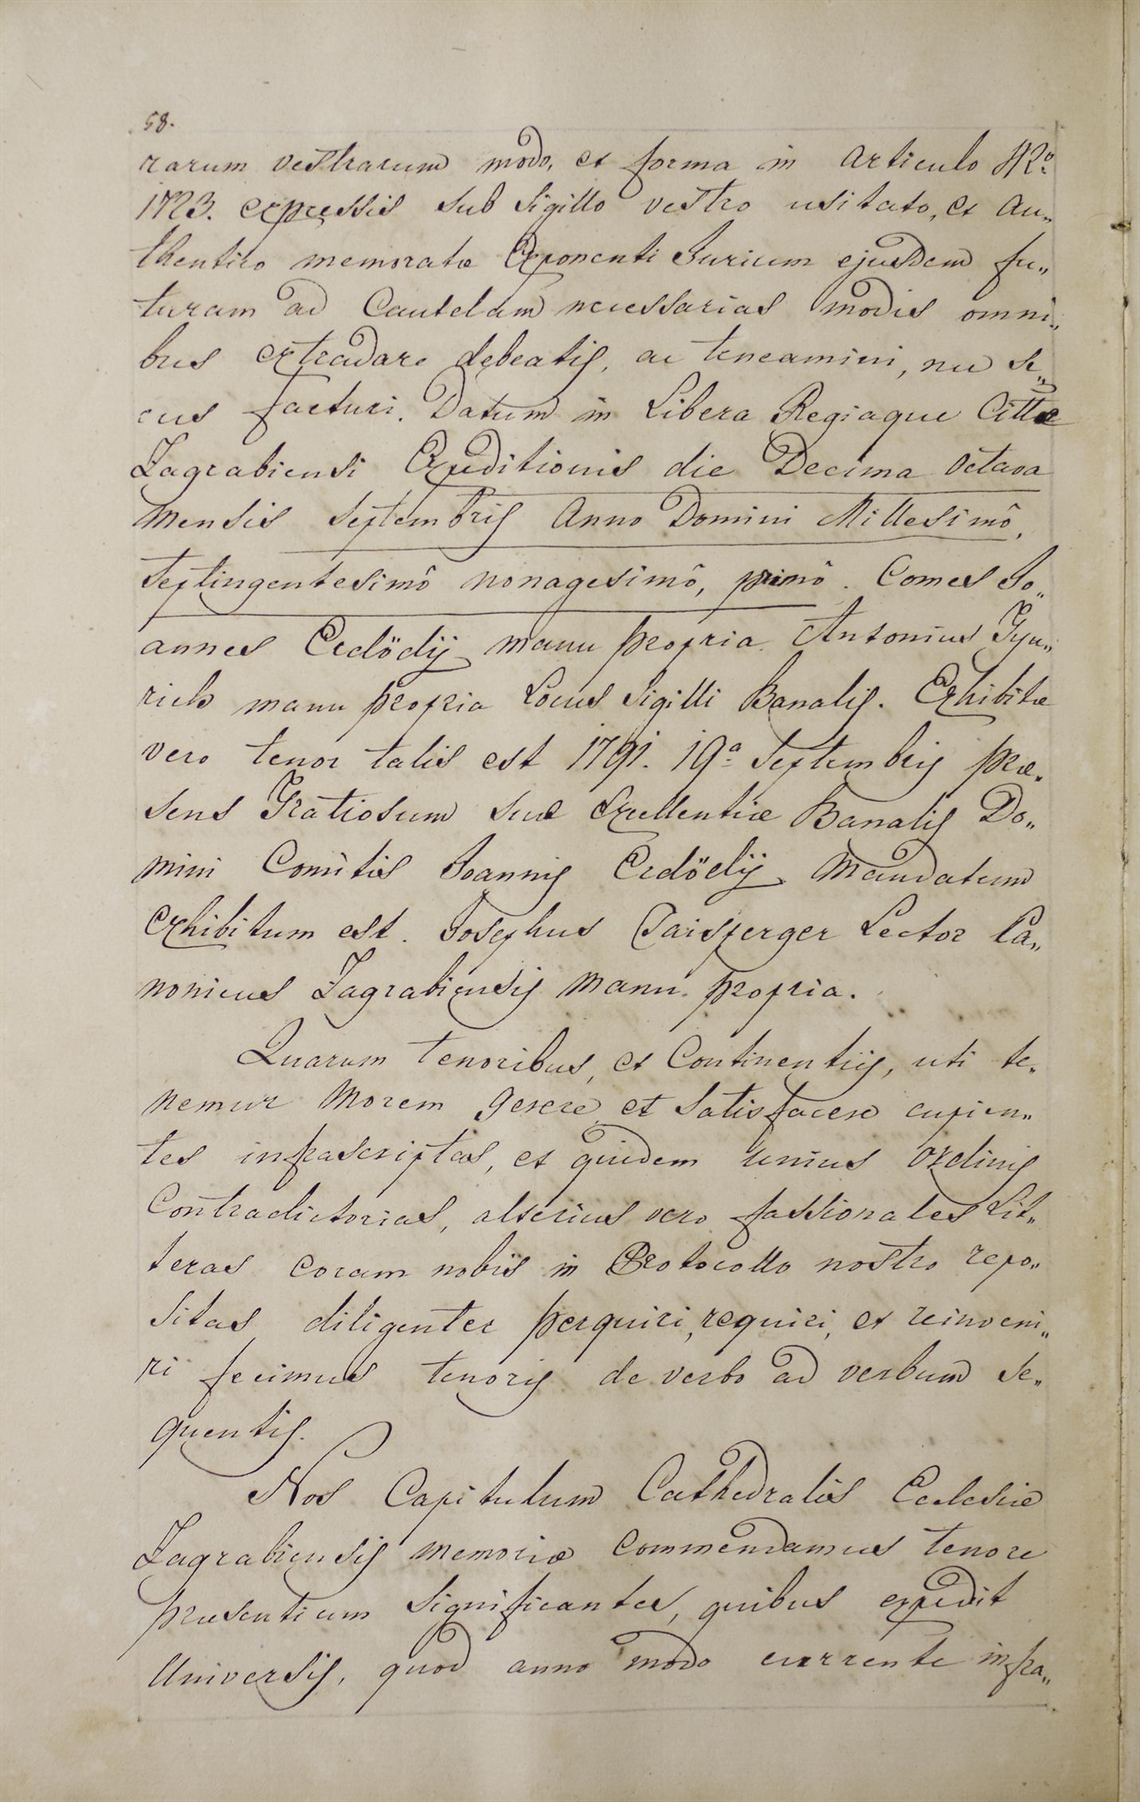 58.
rarum vestrarum modo, et forma in Articulo 42º
1723. expressis sub Sigillo vestro usitato, et au„
thentico memoratæ Exponenti Jurium ejusdem fu„
turam ad Cautelam necessarias modis omni„
bus extradare debeatis, ac teneamini, nec se„
cus facturi. Datum in Libera Regiaque Citte
Zagrabiensi Expeditionis die Decima octava
Mensis Septembris Anno Domini Millesimô,
Septingentesimô nonagesimô, primô. Comes Jo„
annes Erdödÿ manu propria. Antonius Gyu„
rich manu propria Locus Sigilli Banalis. Exhibitæ
vero tenor talis est 1791. 19ª Septembris præ„
sens Gratiosum suæ Excellentiæ Banalis Do„
mini Comitis Joannis Erdödÿ Mandatum
exhibitum est. Josephus Paisperger Lector Ca„
nonicus Zagrabiensis manu propria.
Quarum tenoribus, et Continentijs, uti te„
nemur morem gerere, et satisfacere cupien„
tes infrascriptas, et quidem unius ordinis
Contradictorias, alterius vero fassionales Lit„
teras coram nobis in Protocollo nostro repo„
sitas diligenter perquiri, requiri, et reinveni„
ri fecimus tenoris de verbo ad verbum se„
quentis.
Nos Capitulum Cathedralis Ecclesiæ
Zagrabiensis memoriæ commendamus tenore
præsentium significantes, quibus expedit
Universis, quod anno modo currente infra„